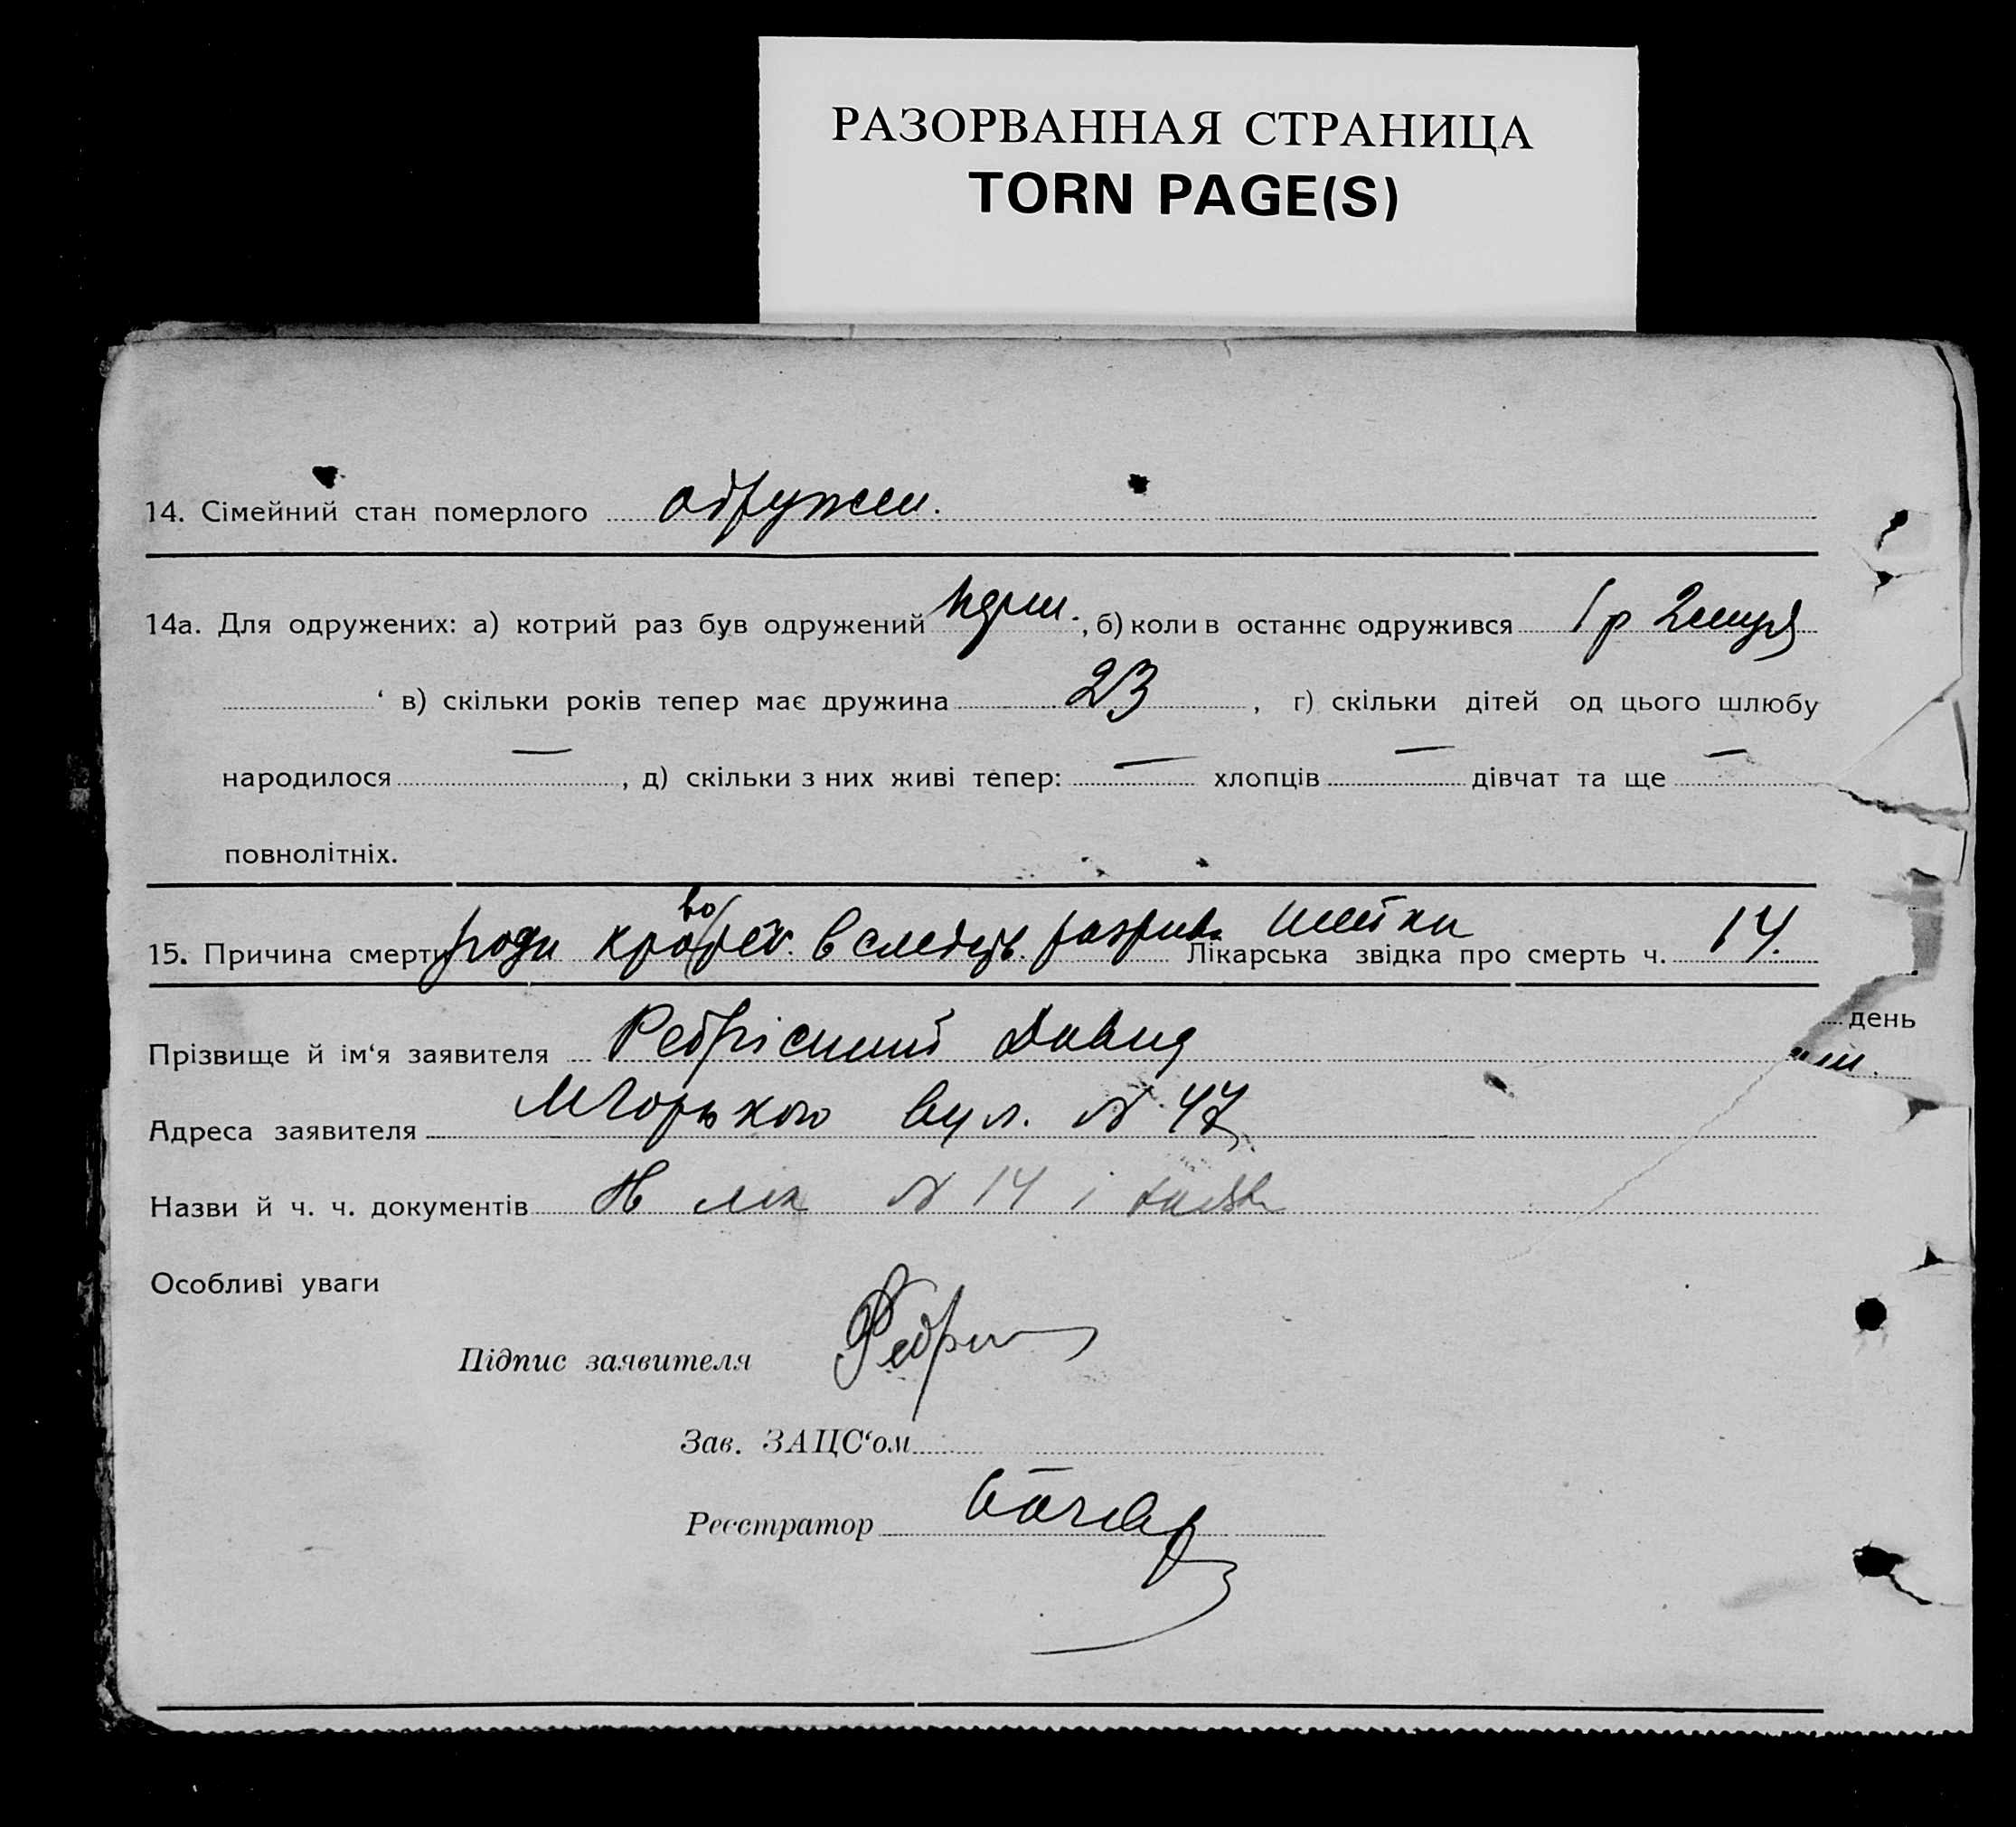 РАЗОРВАННАЯ СТРАНИЦА
TORN PAGE(S)
14. Сімейний стан померлого одружен.
14а. Для одружених: а) котрий раз був одружений перш., б) коли в останнє одружився 1 р 2 місяц
в) скільки років тепер має дружина 23, г) скільки дітей од цього шлюбу
народилося —, д) скільки з них живі тепер: — хлопців — дівчат та ще —
повнолітніх.
15. Причина смерти роди кровотеч. вследств. разрива шейки Лікарська звідка про смерть ч. 14.
день
Прізвище й ім‘я заявителя Ребрісиний Давид
Адреса заявителя М Горького вул. № 47
Назви й ч. ч. документів № 14 і
Особливі уваги
Підпис заявителя
Зав. ЗАЦС‘ом
Реєстратор